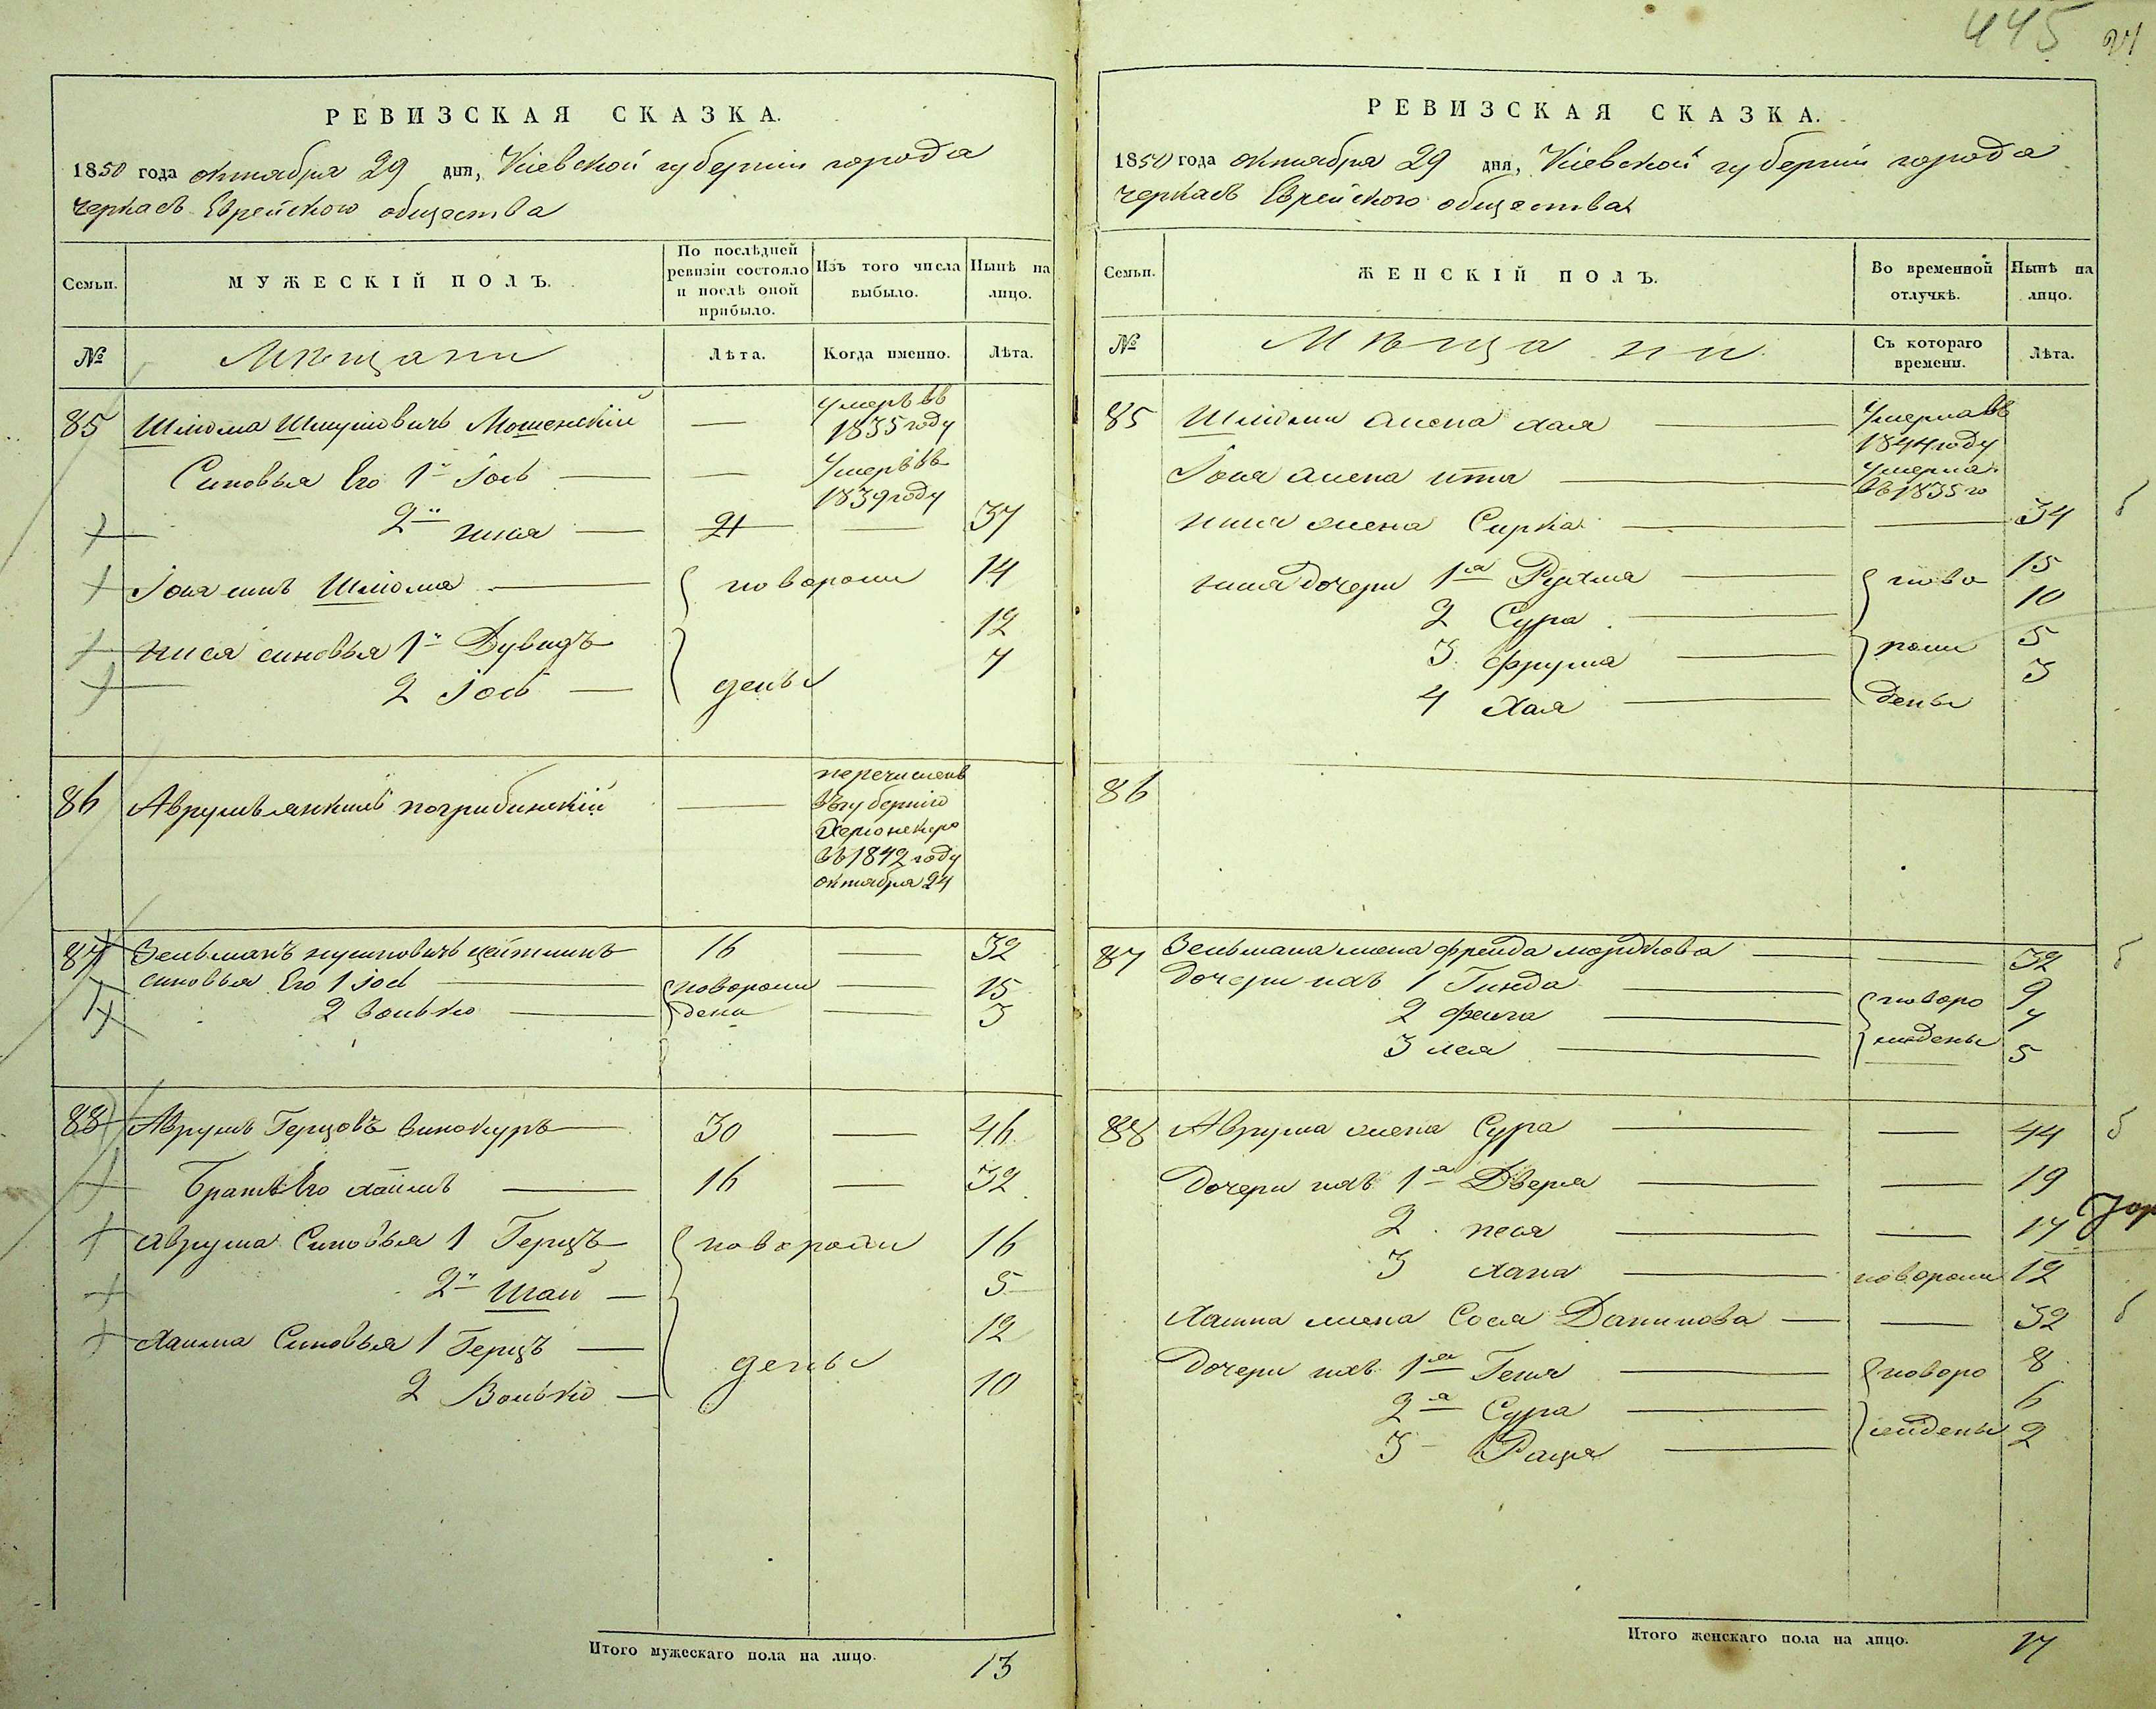 445
РЕВИЗСКАЯ СКАЗКА.
1850 года октября 29 дня, Кіевской губерніи города
черкасъ Еврейского общества
Семьи.
МУЖЕСКІЙ ПОЛЪ.
По послѣдней ревизіи состояло и послѣ оной прибыло.
Изъ того числа выбыло.
Нынѣ на лицо.
№
Мѣщани
Лѣта.
Когда именно.
Лѣта.
85 Шлiома Шмуйловичъ Мошенскій — умеръ въ 1835 году
Синовья Его 1й Іось — — умеръ въ 1839 году
2й нися — 21 — 37
Іося синъ Шлiома — новорожденъ 14
нися синовья 1й Дувидъ 12
2 Іось — 7
86 Аврумъ янкилѣв погрибинскій — перечисленъ
въ губернію
Херсонскую
въ 1842 году
октября 24
87 Зельманъ нусиновичъ цейтлинъ 16 — 32
синовья Его 1 іось — новорожи — 15
2 волько — дени — 3
88 Аврумъ Герцовъ винокуръ — 30 — 46
Братъ Его хаимъ — 16 — 32
Аврума Синовья 1 Герцъ новорожи 16
2й Шаи — 5
Хаима Синовья 1 Герцъ — дены 12
2 Волько — 10
Итого мужескаго пола на лицо. 13
РЕВИЗСКАЯ СКАЗКА.
1850 года октября 29 дня, Кіевской губерніи города
черкасъ Еврейского общества
Семьи.
ЖЕНСКІЙ ПОЛЪ.
Во временной отлучкѣ.
Нынѣ на лицо.
№
Мѣщанки
Съ котораго времени.
Лѣта.
85 Шлiоми жена хая — умерла въ 1844 году
Іося жена ита — умерла въ 1835 го
нися жена Сирка — — 34
нися дочери 1я Рухля — ново 15
2 Сура — 10
3 фрума — рожи 5
4 Хая — дены 3
86
87 Зельмана жена фрейда мордкова — — 32
Дочери ихъ 1 Гинда — новоро 9
2 фейга — 7
3 лея — ждены 5
88 Аврума жена Сура — — 44
Дочери ихъ 1я Двера — — 19
2 песя — — 17
3 хана — новорожи 12
Хаима жена Сося Данилова — — 32
Дочери ихъ 1я Геня — новоро 8
2я Сура — 6
3 — ждены 2
Итого женскаго пола на лицо. 17